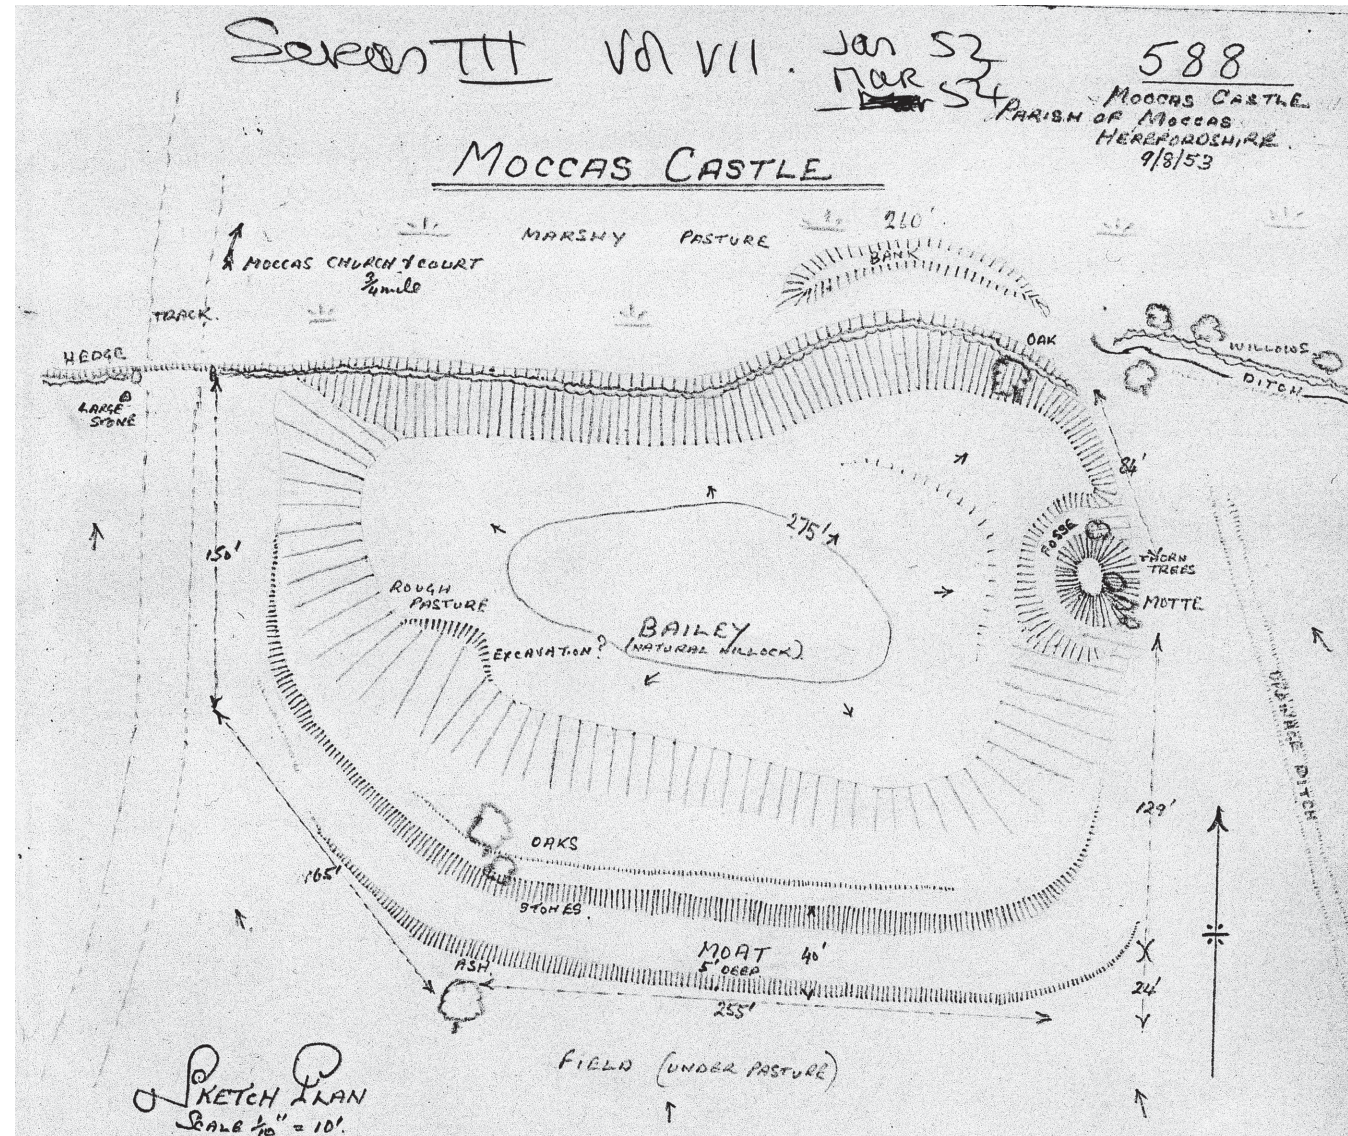 Series III Vol VII. Jan 52
Mar 54
588
MOCCAS CASTLE
PARISH OF MOCCAS
HEREFORDSHIRE.
9/8/53
MOCCAS CASTLE
MARSHY PASTURE
260'
BANK
MOCCAS CHURCH & COURT
3/4 mile
TRACK.
HEDGE
LARGE
STONE
OAK
WILLOWS
DITCH
84'
275'
150'
FOSSE
THORN
TREES
MOTTE
ROUGH
PASTURE
EXCAVATION?
BAILEY
(NATURAL HILLOCK).
DRAINAGE DITCH
129'
OAKS
165'
STONES.
MOAT 40'
5' DEEP
ASH
255'
24'
FIELD (UNDER PASTURE)
SKETCH PLAN
SCALE 1/10" = 10'.